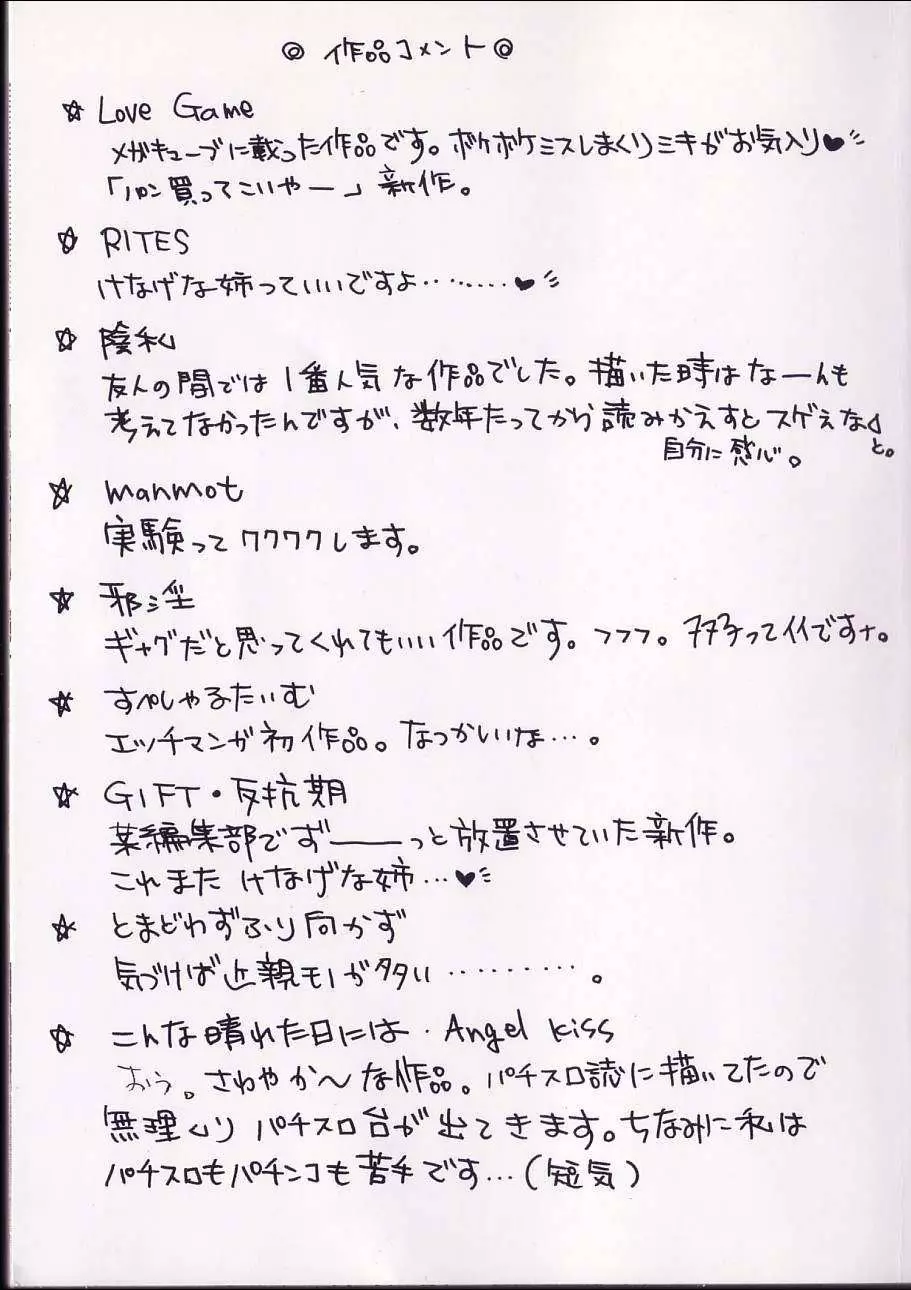 ◎ 作品コメント ◎
☆ Love Game
メガキューブに載った作品です。ボケボケミスしまくりミキがお気入り♥
「パン買ってこいやー」新作。
☆ RITES
けなげな姉っていいですよ‥‥‥‥♥
☆ 陰私
友人の間では1番人気な作品でした。描いた時はなーんも
考えてなかったんですが、数年たってから読みかえすとスゲえな」
と。
自分に感心。
☆ manmot
実験ってワクワクします。
☆ 邪淫
ギャグだと思ってくれてもいい作品です。フフフ。フタ子ってイイですナ。
☆ すぺしゃるたいむ
エッチマンガ初作品。なっかいいな…。
☆ GIFT・反抗期
某編集部でずーーーっと放置させていた新作。
これまたけなげな姉…♥
☆ とまどわずふり向かず
気づけば近親モノが多い‥‥‥‥‥。
☆ こんな晴れた日には・Angel kiss
おう。さわやか〜な作品。パチスロ誌に描いてたので
無理くりパチスロ台が出てきます。ちなみに私は
パチスロもパチンコも苦手です…(短気)